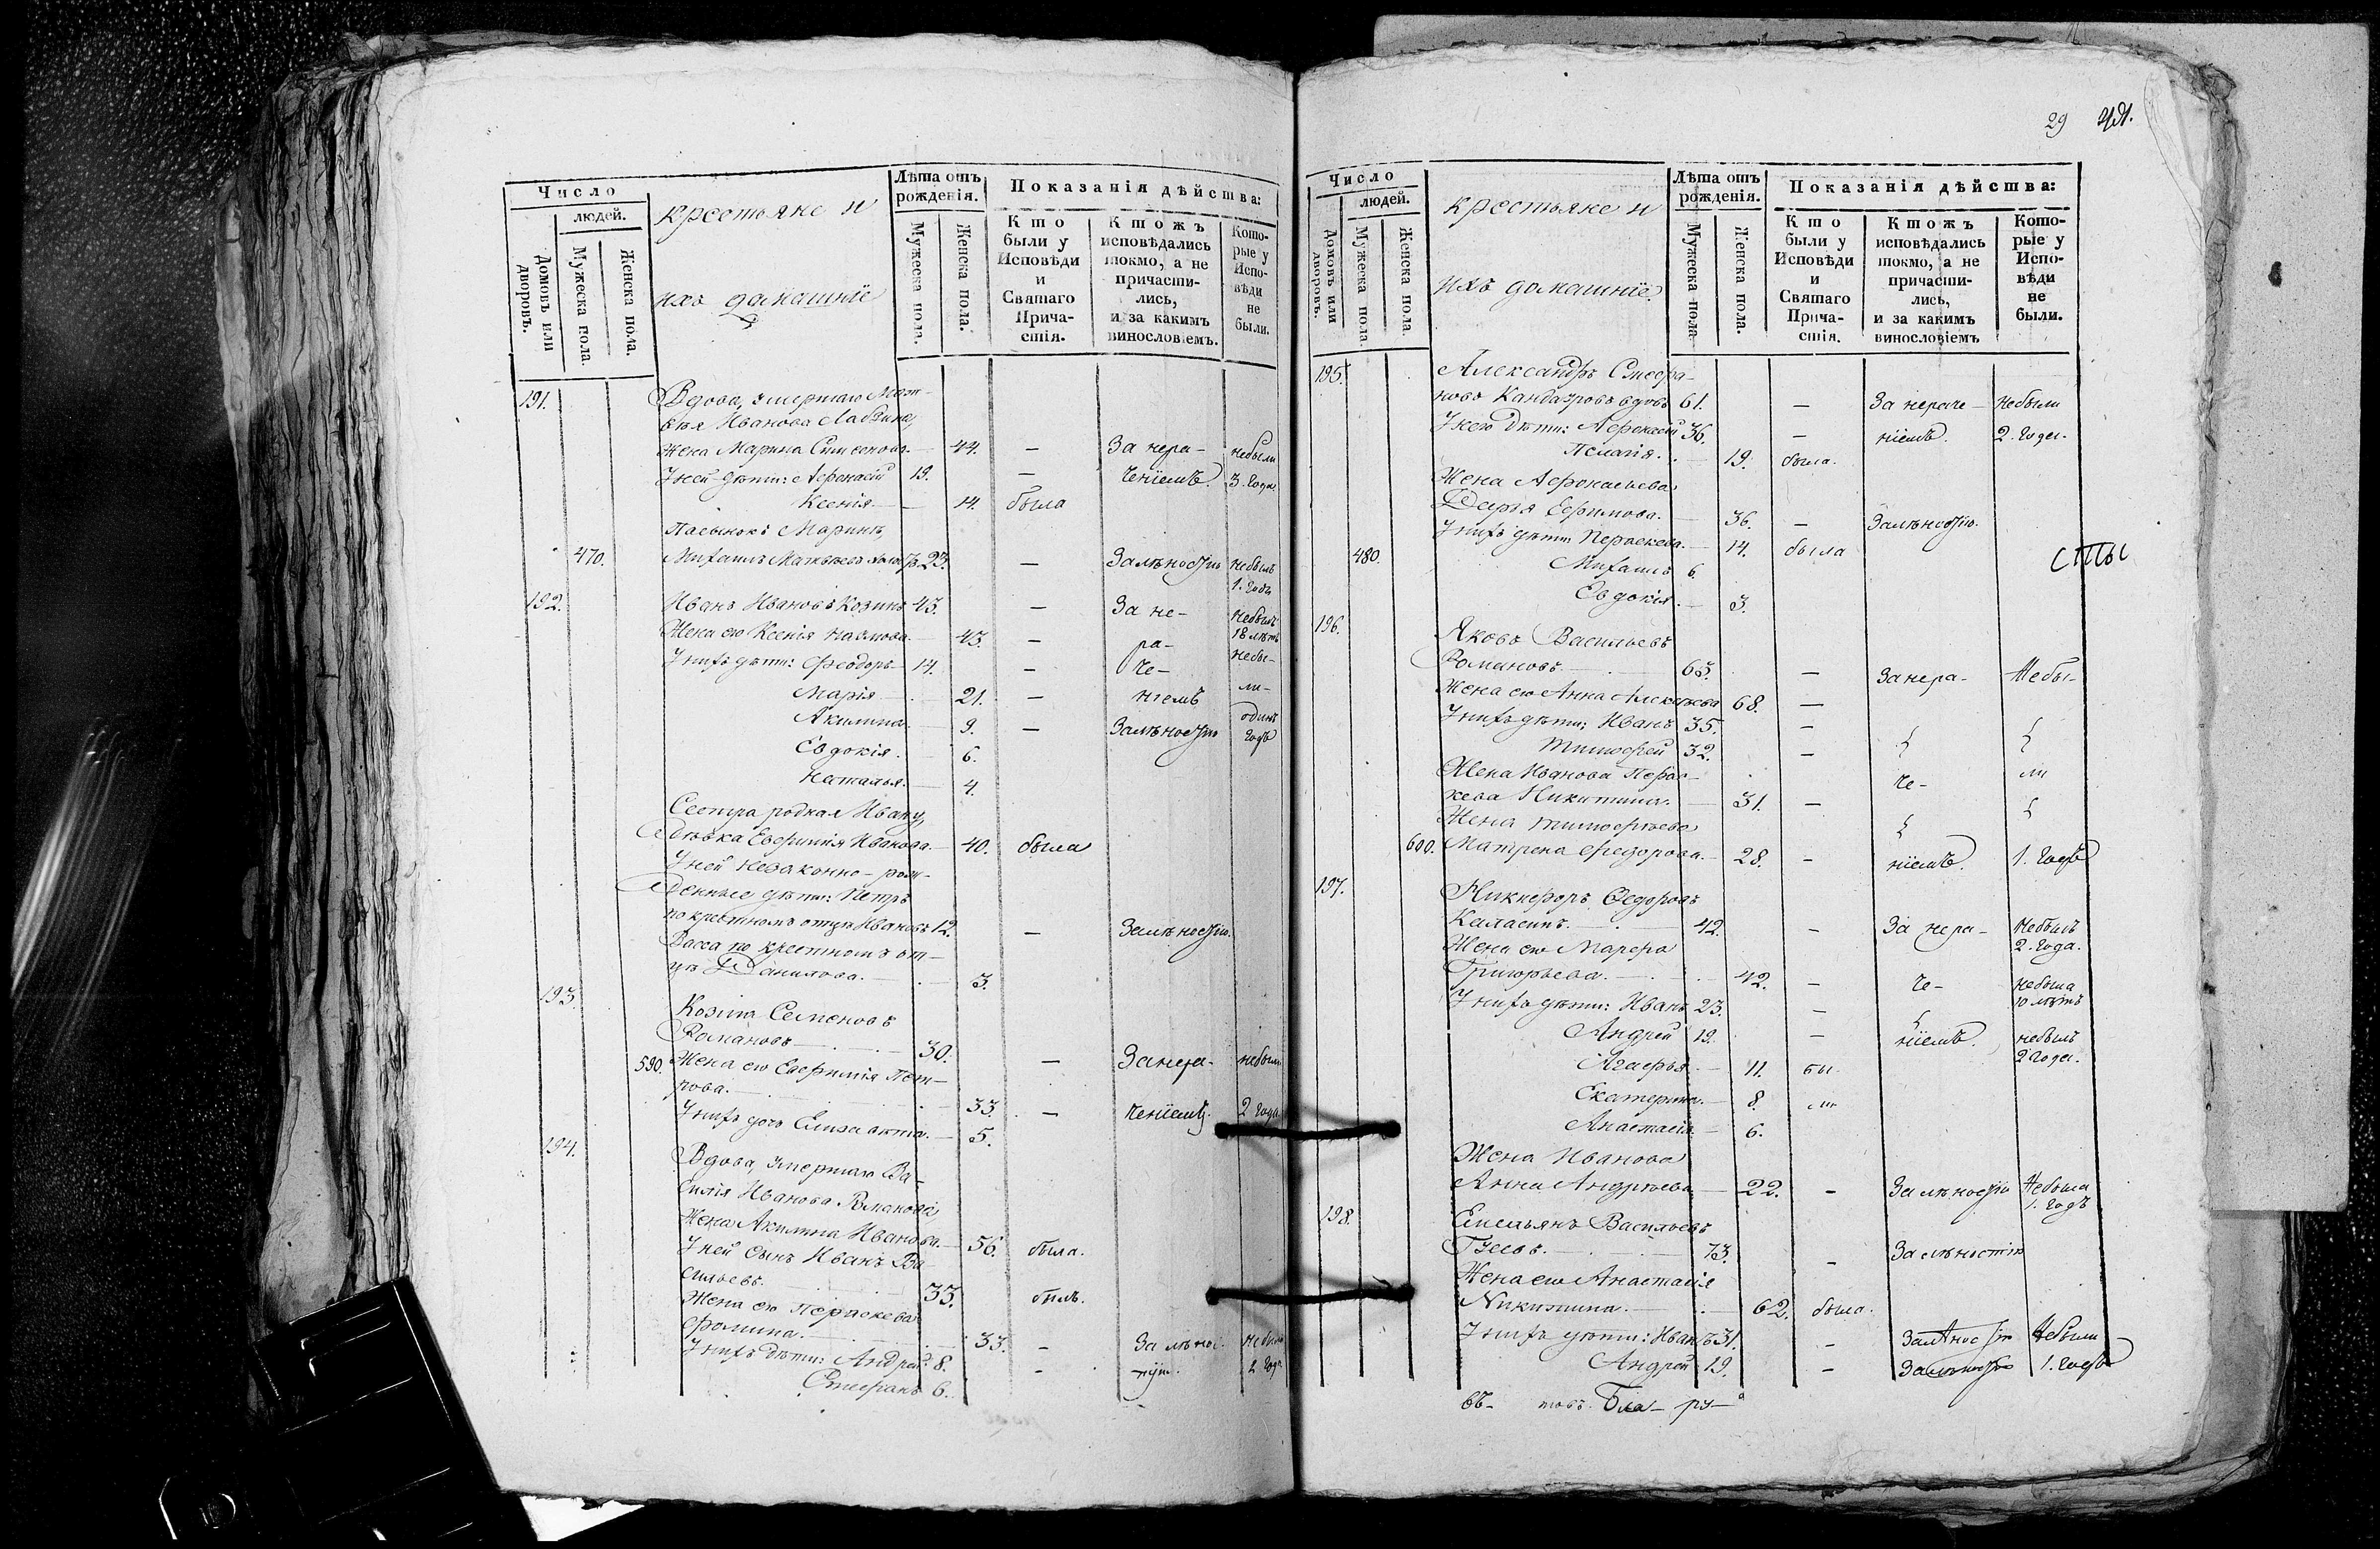 Число
людей.
Домовъ или дворовъ.
Мужеска пола.
Женска пола.
крестьяне и
ихъ домашнїе
Лѣта отъ рожденія.
Мужеска пола.
Женска пола.
Показанія дѣйства:
Кто были у Исповѣди и Святаго Прича- стія.
Ктожъ исповѣдались токмо, а не причасти- лись, и за какимъ винословіемъ.
Кото- рые у Испо- вѣди не были.
191. Вдова, умершаго Мат-
вея Иванова
Жена Марина Симеонова. 44. — За нера- небыли
У ней дѣти: Афонасїй 19. — ченїемъ. 3. года
Ксенїя. 14. была
Пасынокъ Марины,
470. Михаилъ Матвѣевъ 23. — За лѣностїю небылъ
1. годъ
192. Иванъ Ивановъ Козинъ 43. — За не- небылъ
Жена ею Ксенїя Наумова. 43. — ра- 18 лѣтъ
У нихъ дѣти: Феодоръ 14. — че- небы-
Марїя 21. — нїемъ ли-
Акилина 9. — За лѣностїю одинъ
Евдокїя. 6. годъ
Наталья. 4.
Сестра родная Ивану,
Дѣвка Евфимїя Иванова. 40. была
У ней незаконно-рож-
денные дѣти: Петръ
по крестномъ отцѣ Ивановъ 12. — За лѣностїю.
Васса по крестномъ от-
цѣ Данилова. 3.
193. Козма Семеновъ
Романовъ 30. — За нера- небыли
590. Жена ею Евфимїя Пет-
рова. 33. — ченїемъ. 2 года
У нихъ дочь Елизавета. 5.
194. Вдова, умершаго Ва-
силїя Иванова Романова
Жена Акилина Иванова. 56. была.
У ней сынъ Иванъ Ва
сильевъ. 33. былъ.
Жена ею Параскева
Фомина. 33. — За лѣнос- небыли
У нихъ дѣти: Андрей 8. — тїю. 2 года
Стефанъ 6.
29
Число
людей.
Домовъ или дворовъ.
Мужеска пола.
Женска пола.
крестьяне и
ихъ домашнїе.
Лѣта отъ рожденія.
Мужеска пола
Женска пола.
Показанія дѣйства:
Кто были у Исповѣди и Святаго Прича- стія.
Ктожъ исповѣдались токмо, а не причасти- лись, и за какимъ винословіемъ
Кото- рые у Испо- вѣди не были.
195. Александръ Стефа-
новъ вдовъ 61. — За нераче- небыли
У нею дѣти: Афонасїй 36. — нїемъ. 2. года.
Пелагїя. 19. была.
Жена Афонасьева
Дарїя Ефимова. 36. — За лѣностїю.
У нихъ дѣти Параскева. 14. была
480. Михаилъ 6. сты
Евдокїя 3.
196. Яковъ Васильевъ
Романовъ 65. — За нера- Небы-
Жена ею Анна Алексѣева 68. —
У нихъ дѣти: Иванъ 35. —
Тимофей 32. —
Жена Иванова Парас-
кева Никитина. 31. — че- ли
Жена Тимофеева
600. Матрена Федорова. 28. — нїемъ. 1. годъ
197. Никифоръ Федоровъ
Каласинъ. 42. — За нера- Небылъ
2. года.
Жена ею Марфа
Григорьева. 42. — че- небыла
10 лѣтъ
У нихъ дѣти: Иванъ 23. —
Андрей 19. — нїемъ. небылъ
2 года.
Агафья 11. бы-
Екатерина. 8. ли
Анастасїя 6.
Жена Иванова
Анна Андреева 22. — За лѣностїю Небыла
1. годъ
198. Емельянъ Васильевъ
Гусевъ. 73. — За лѣностїю
Жена ею Анастасїя
Никитина. 62. была.
У нихъ дѣти: Иванъ 31. — За лѣностїю Небыли
Андрей 19. — За лѣностїю 1. годъ